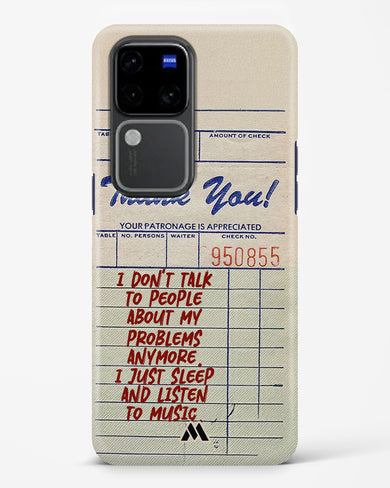 ZEISS
TAB
AMOUNT OF CHECK
You!
YOUR PATRONAGE IS APPRECIATED
TABLE NO. PERSONS WAITER CHECK NO.
950855
I DON'T TALK
TO PEOPLE
ABOUT MY
PROBLEMS
ANYMORE.
I JUST SLEEP
AND LISTEN
TO MUSIC